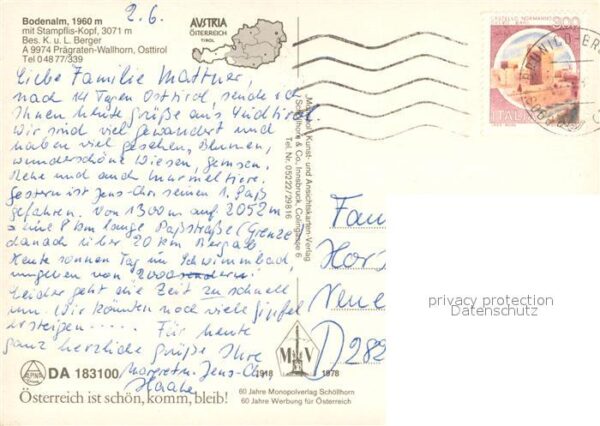 Bodenalm, 1960 m
mit Stampflis-Kopf, 3071 m
Bes. K. u. L. Berger
A 9974 Prägraten-Wallhorn, Osttirol
Tel 0 48 77/339
2.6.
AUSTRIA
ÖSTERREICH
TIROL
Liebe Familie Mattner,
nach 14 Tagen Osttirol, sende ich
Ihnen heute Grüße aus Südtirol.
Wir sind viel gewandert und
haben viel gesehen, Blumen,
wunderschöne Wiesen, Gemsen,
Rehe und auch Murmeltiere.
Gestern ist Jens-Chr. seinen 1. Paß
gefahren. Von 1300 m auf 2052 m
eine 8 km lange Paßstraße (Grenze)
danach über 20 km Bergab
Heute sonnen Tag im Schwimmbad,
umgeben von 2000
Leider geht die Zeit zu schnell
um. Wir könnten noch viele Gipfel
ersteigen ..... Für heute
ganz herzliche Grüße Ihre
Margret u. Jens-Chr.
Haake
"Monopol" Kunst- und Ansichtskarten-Verlag
Schöllhorn & Co., Innsbruck, Colingasse 6
Tel. Nr. 05222/29816
CASTELLO NORMANNO
300
ITALIA
Fam
Hor
Neue
D 282
privacy protection
Datenschutz
ALPINA
DA 183100
1918 MV 1978
60 Jahre Monopolverlag Schöllhorn
60 Jahre Werbung für Österreich
Österreich ist schön, komm, bleib!